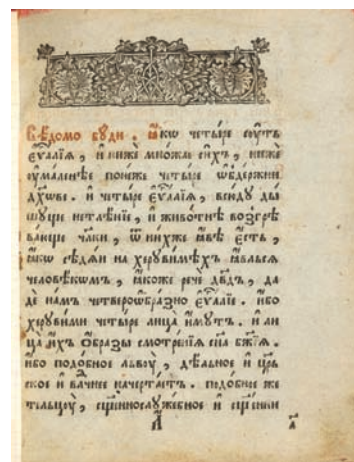 Вѣ́домо бꙋ́ди . ꙗ҆́кѡ четы́ре сꙋ́ть
є҆ѵⷢ҇алїѧ , и҆ нижѐ мно́жае си́хъ , нижѐ
оу҆ма́леннѣе поне́же четы́ре ѡ҆бдержнїи
дх҃ове . и҆ четы́ре є҆ѵⷢ҇алїѧ , всю́дꙋ ды́
шꙋще нетлѣ́нїе , и҆ живо́тнѣ возгрѣ
ва́юще чл҃ки , ѿ ни́хже ꙗ҆́вѣ є҆́сть ,
ꙗ҆́кѡ сѣдѧ́и на херꙋви́мѣхъ ꙗ҆вле́йсѧ
человѣ́кѡмъ , ꙗ҆́коже речѐ дв҃дъ , да
дѐ на́мъ четвероѡ҆бра́зно є҆ѵⷢ҇алїе . и҆́бо
херꙋви́ми четы́ре лица̀ и҆́мꙋтъ . и҆ ли
ца̀ и҆́хъ ѡ҆́бразы смотре́нїѧ сн҃а бж҃їѧ .
и҆́бо подо́бное льво́ꙋ , дѣ́льное и҆ цр҃ь
ское и҆ влⷣчнее начерта́етъ . подо́бное же
тельцꙋ̀ , сщ҃еннослꙋже́бное и҆ сщ҃е́нни